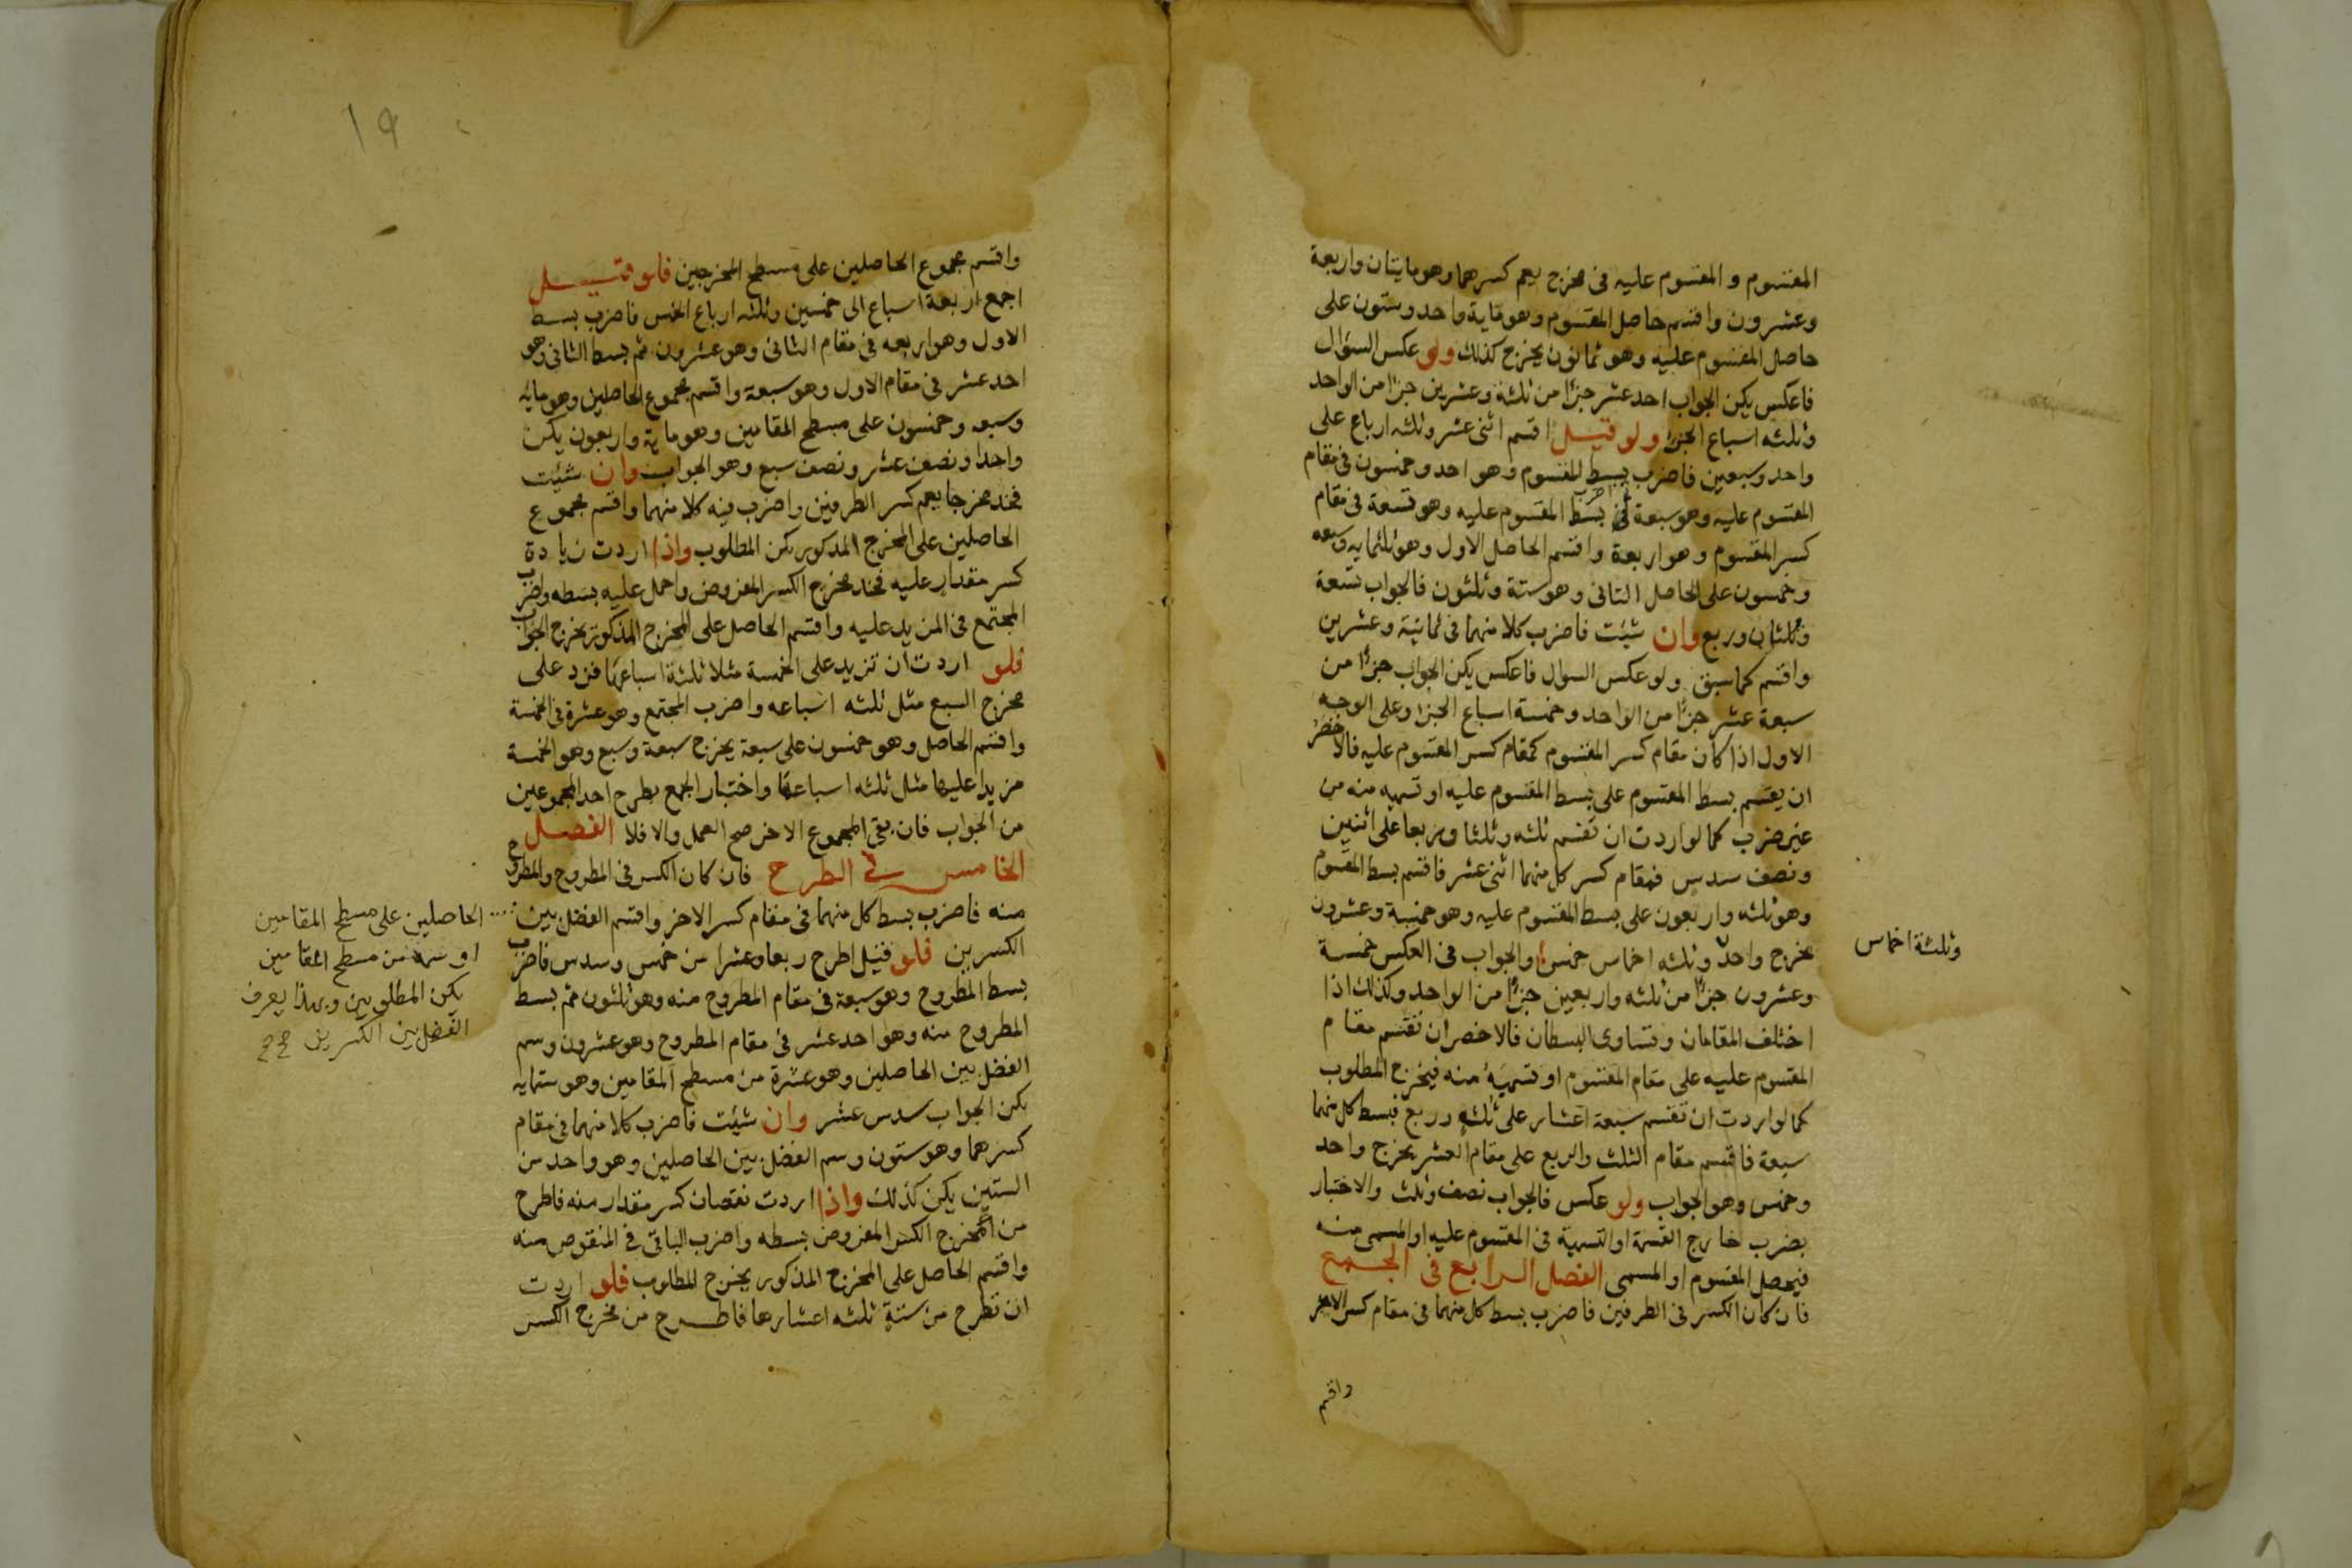 المقسوم و المقسوم عليه فى مخرج يعم كسرهما وهو مايتان واربعة
وعشرون واقسم حاصل المقسوم وهو ماية واحد وستون على
حاصل المقسوم عليه وهو ثمانون يخرج كذلك ولو عكس السؤال
فاعكس يكن الجواب احد عشر جزأ من ثلثة وعشرين جزأ من الواحد
وثلثه اسباع الجزء ولو قيل اقسم اثنى عشر وثلثه ارباع على
واحد وسبعين فاضرب بسط المقسوم وهو احد وخمسون فى مقام
المقسوم عليه وهو سبعة ثم اضرب بسط المقسوم عليه وهو تسعة فى مقام
كسر المقسوم وهو اربعة واقسم الحاصل الاول وهو ثلثمايه وسبعه
وخمسون على الحاصل الثانى وهو ستة وثلثون فالجواب تسعة
وثلثان وربع وان شئت فاضرب كلا منهما فى ثمانية وعشرين
واقسم كما سبق ولو عكس السوال فاعكس يكن الجواب جزأ من
سبعة عشر جزأ من الواحد وخمسة اسباع الجزء وعلى الوجه
الاول اذا كان مقام كسر المقسوم كمقام كسر المقسوم عليه فالاخصر
ان يقسم بسط المقسوم على بسط المقسوم عليه او تسميه منه من
غير ضرب كما لو اردت ان تقسم ثلثه وثلثا وربعا على اثنين
ونصف سدس فمقام كسر كل منهما اثنى عشر فاقسم بسط المقسوم
وهو ثلثه واربعون على بسط المقسوم عليه وهو خمسة وعشرون
يخرج واحد وثلثه اخماس خمس والجواب فى العكس خمسة
وثلثة اخماس
وعشرون جزأ من ثلثه واربعين جزأ من الواحد وكذلك اذا
اختلف المقامان وتساوى البسطان فالاخصر ان تقسم مقام
المقسوم عليه على مقام المقسوم او تسميه منه فيخرج المطلوب
كما لو اردت ان تقسم سبعة اعشار على ثلث وربع فبسط كل منهما
سبعة فاقسم مقام الثلث والربع على مقام العشر يخرج واحد
وخمس وهو الجواب ولو عكس فالجواب نصف وثلث والاختبار
بضرب خارج القسمة او التسمية فى المقسوم عليه او المسمى منه
فيحصل المقسوم او المسمى الفصل الرابع فى الجمع
فان كان الكسر فى الطرفين فاضرب بسط كل منهما فى مقام كسر الاخر
واقسم
١٩
واقسم مجموع الحاصلين على مسطح المخرجين فلو قيل
اجمع اربعة اسباع الى خمسين وثلثه ارباع الخمس فاضرب بسط
الاول وهو اربعه فى مقام الثانى وهو عشرون ثم بسط الثانى وهو
احد عشر فى مقام الاول وهو سبعة واقسم مجموع الحاصلين وهو مايه
وسبعه وخمسون على مسطح المقامين وهو ماية واربعون يكن
واحدا ونصف عشر ونصف سبع وهو الجواب وان شئت
فخذ مخرجا يعم كسر الطرفين واضرب فيه كلا منهما واقسم مجموع
الحاصلين على المخرج المذكور يكن المطلوب واذا اردت زيادة
كسر مقدار عليه فخذ مخرج الكسر المفروض واحمل عليه بسطه واضرب
المجتمع فى المزيد عليه واقسم الحاصل على المخرج المذكور يخرج الجواب
فلو اردت ان تزيد على الخمسة مثلا ثلثة اسباعها فزد على
مخرج السبع مثل ثلثه اسباعه واضرب المجتمع وهو عشرة فى الخمسة
واقسم الحاصل وهو خمسون على سبعة يخرج سبعة وسبع وهو الخمسة
مزيدا عليها مثل ثلثه اسباعها واختبار الجمع بطرح احد المجموعين
من الجواب فان بقى المجموع الاخر صح العمل والا فلا الفصل
الخامس فى الطرح فان كان الكسر فى المطروح والمطروح
منه فاضرب بسط كل منهما فى مقام كسر الاخر واقسم الفضل بين
الحاصلين على مسطح المقامين
او سمه من مسطح المقامين
يكن المطلوبين وبهذا يعرف
الفضل بين الكسرين صح
الكسرين فلو قيل اطرح ربعا وعشرا من خمس وسدس فاضرب
بسط المطروح وهو سبعة فى مقام المطروح منه وهو ثلثون ثم بسط
المطروح منه وهو احد عشر فى مقام المطروح وهو عشرون وسم
الفضل بين الحاصلين وهو عشرة من مسطح المقامين وهو ستمايه
يكن الجواب سدس عشر وان شئت فاضرب كلا منهما فى مقام
كسرهما وهو ستون وسم الفضل بين الحاصلين وهو واحد من
الستين يكن كذلك واذا اردت نقصان كسر مقدار منه فاطرح
من المخرج الكسر المفروض بسطه واضرب الباقى فى المنقوص منه
واقسم الحاصل على المخرج المذكور يخرج المطلوب فلو اردت
ان تطرح من ستة ثلثه اعشارها فاطرح من مخرج الكسر